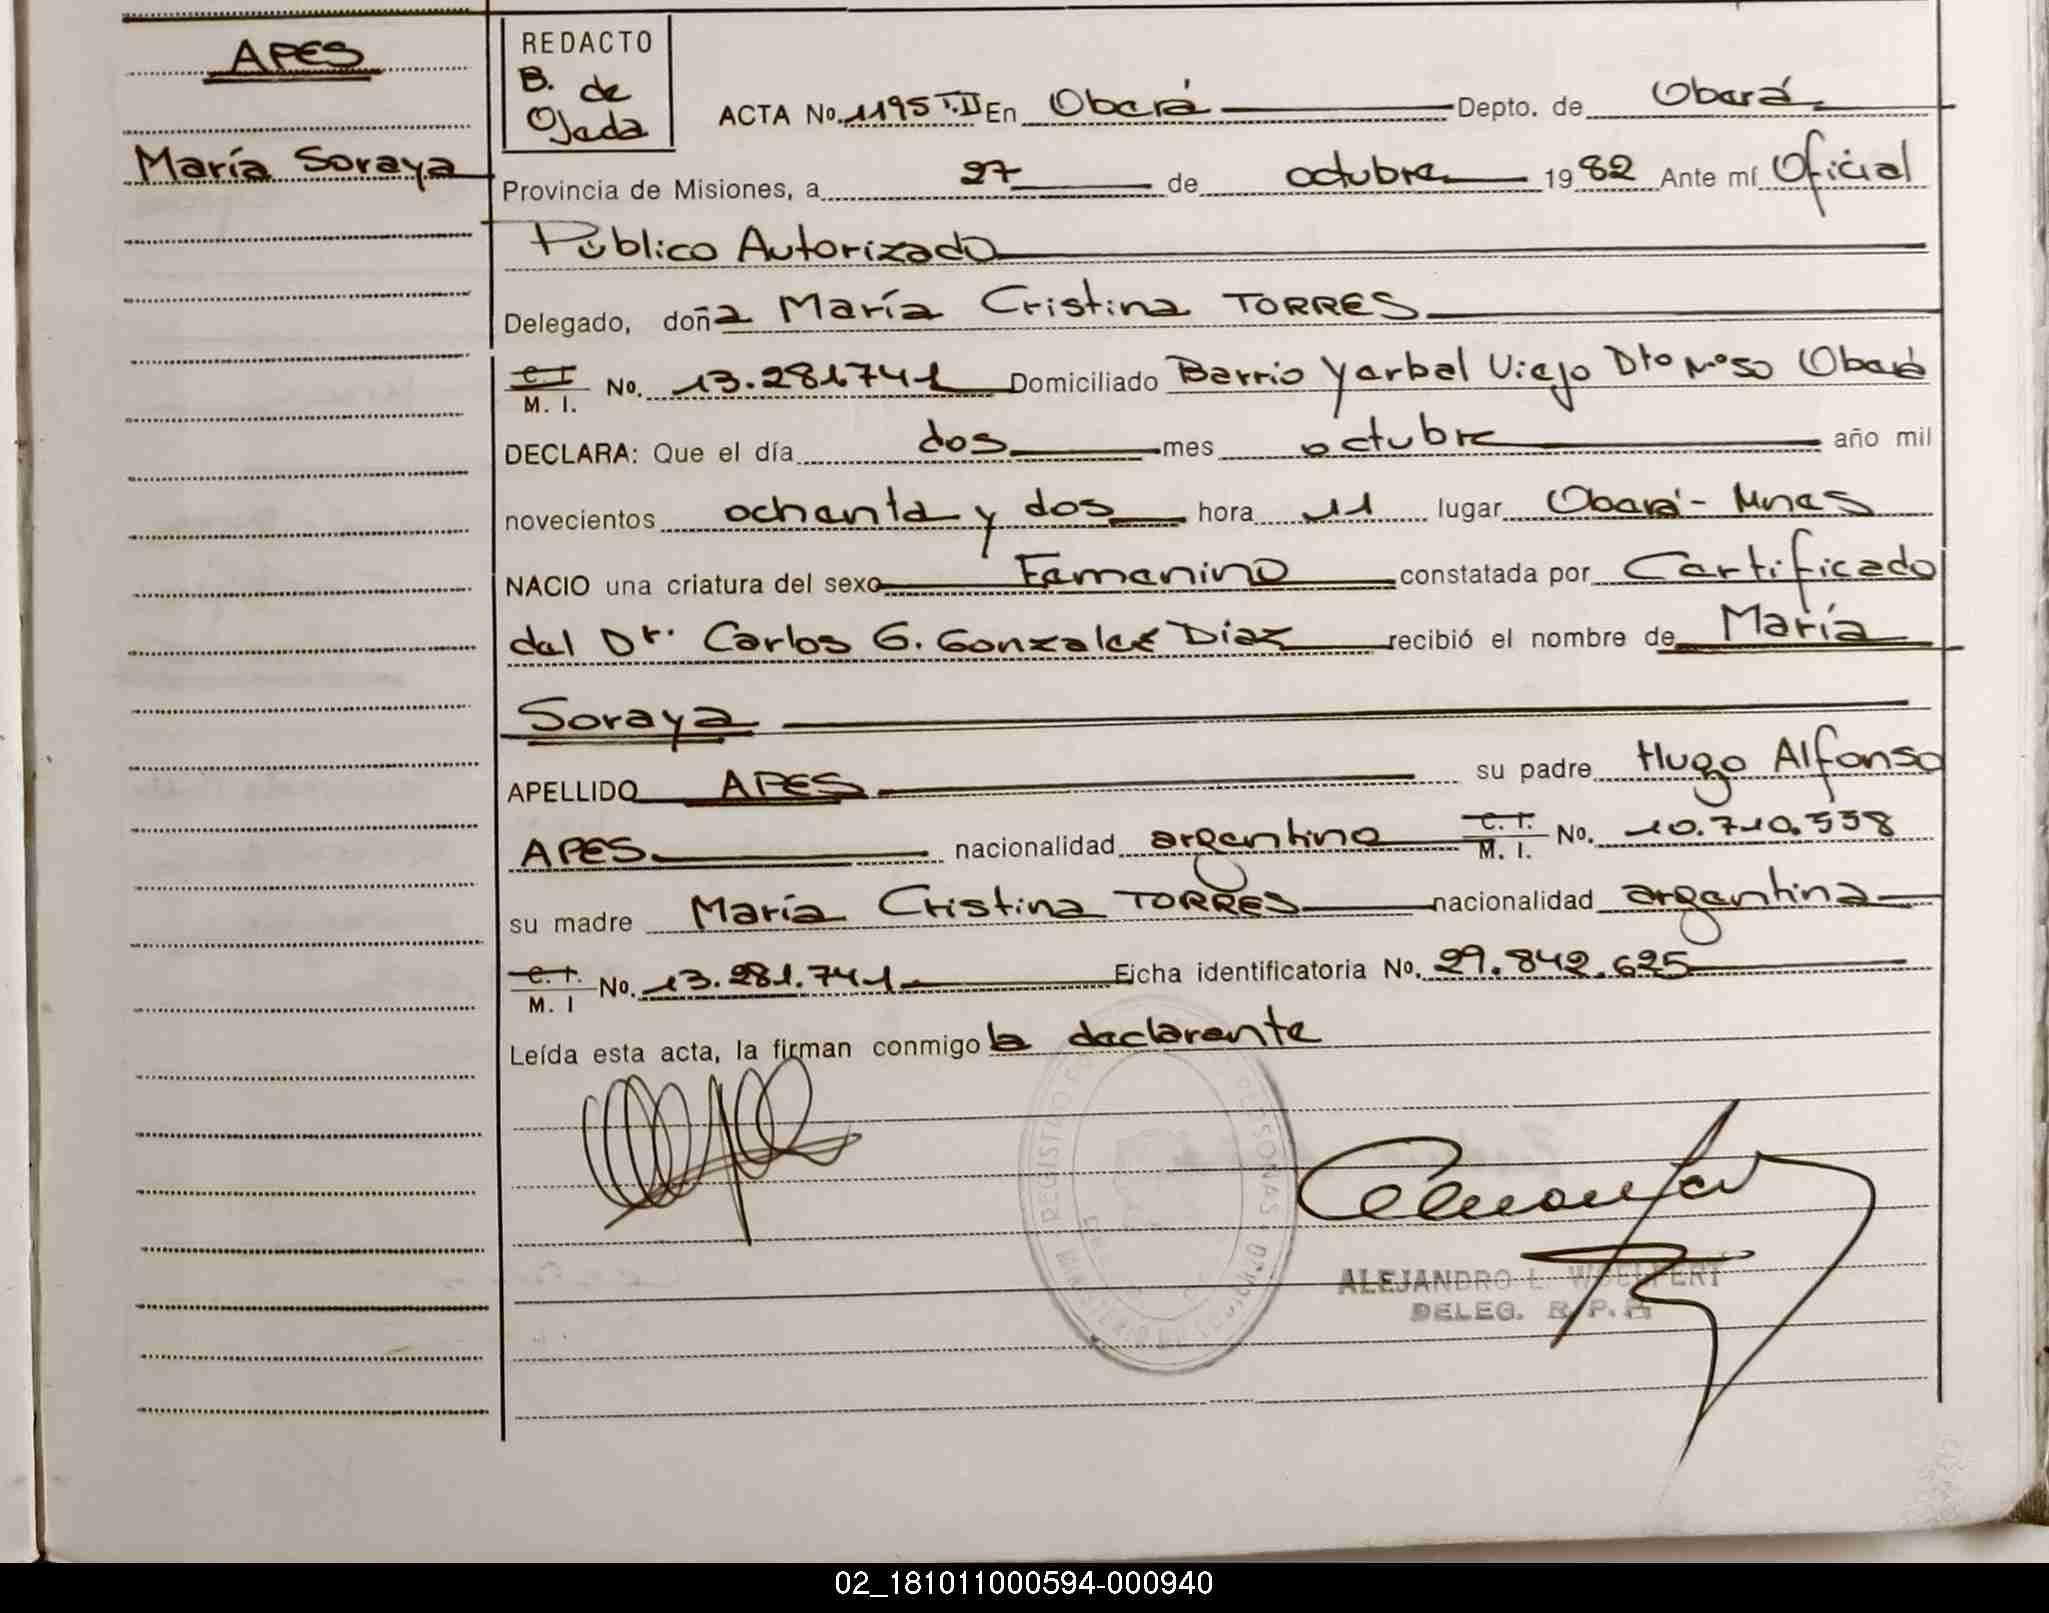 APES
María Soraya
REDACTO
B. de
Ojeda
ACTA No. 1195 T.II En Oberá Depto. de Oberá
Provincia de Misiones, a 27 de octubre 1982 Ante mí Oficial
Público Autorizado
Delegado, doña María Cristina TORRES
C.I. M. I. No. 13.281.741 Domiciliado Barrio Yerbal Viejo Dto Nº50 Oberá
DECLARA: Que el día dos mes octubre año mil
novecientos ochenta y dos hora 11 lugar Oberá - Mnes
NACIO una criatura del sexo Femenino constatada por Certificado
del Dr. Carlos G. Gonzalez Diaz recibió el nombre de María
Soraya
APELLIDO APES su padre Hugo Alfonso
APES nacionalidad argentino C.I. M. I. No. 10.710.558
su madre María Cristina TORRES nacionalidad argentina
C.I. M. I No. 13.281.741 Ficha identificatoria No. 29.842.625
Leída esta acta, la firman conmigo la declarante
REGISTRO PERSONAS
ALEJANDRO L. WOELFERT
DELEG. R. P. P.
02_181011000594-000940